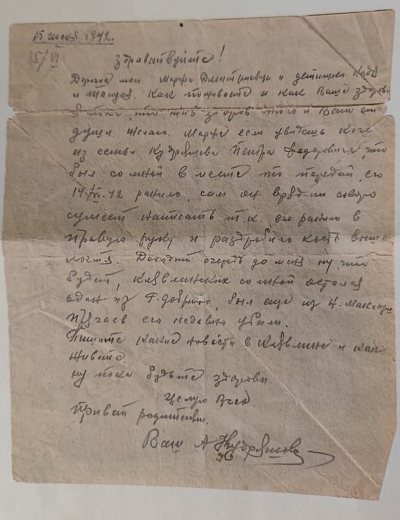 15 июня 1942.
15/VI
Здравствуйте!
Дорогие мои Марфа Дмитриевна и детишки Надя
и . Как поживаете и как Ваше здоровье
я пока что жив здоров того и Вам от
души желаю. Марфа если увидишь кого
из семьи Кудряшова Петра Федоровича что
был со мной в месте то передай, его
14/VI-42 ранило, сам он врядли скоро
сумеет написать т.к. его ранило в
правую руку и раздробило кость выше
кисти. Доходит очередь до меня ну что
будет, Клявлинских со мной остался
один из , был еще из Н-
его недавно убили.
Пишите какие новости в Клявлино и как
живете
ну пока будьте здоровы.
Целую Всех
Привет родителям.
Ваш А Кудряшов